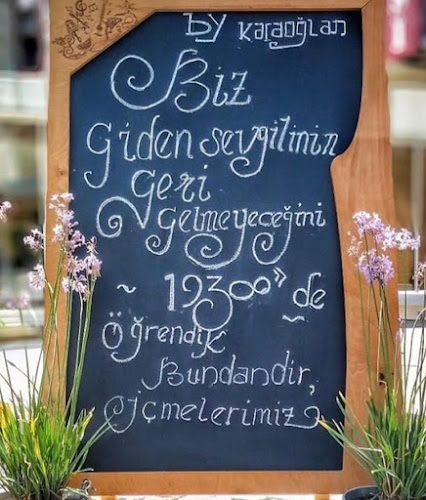 by Karaoğlan
Biz
Giden sevgilinin
Geri
gelmeyeceğini
~ 1938" de ~
Öğrendik
Bundandır,
İçmelerimiz